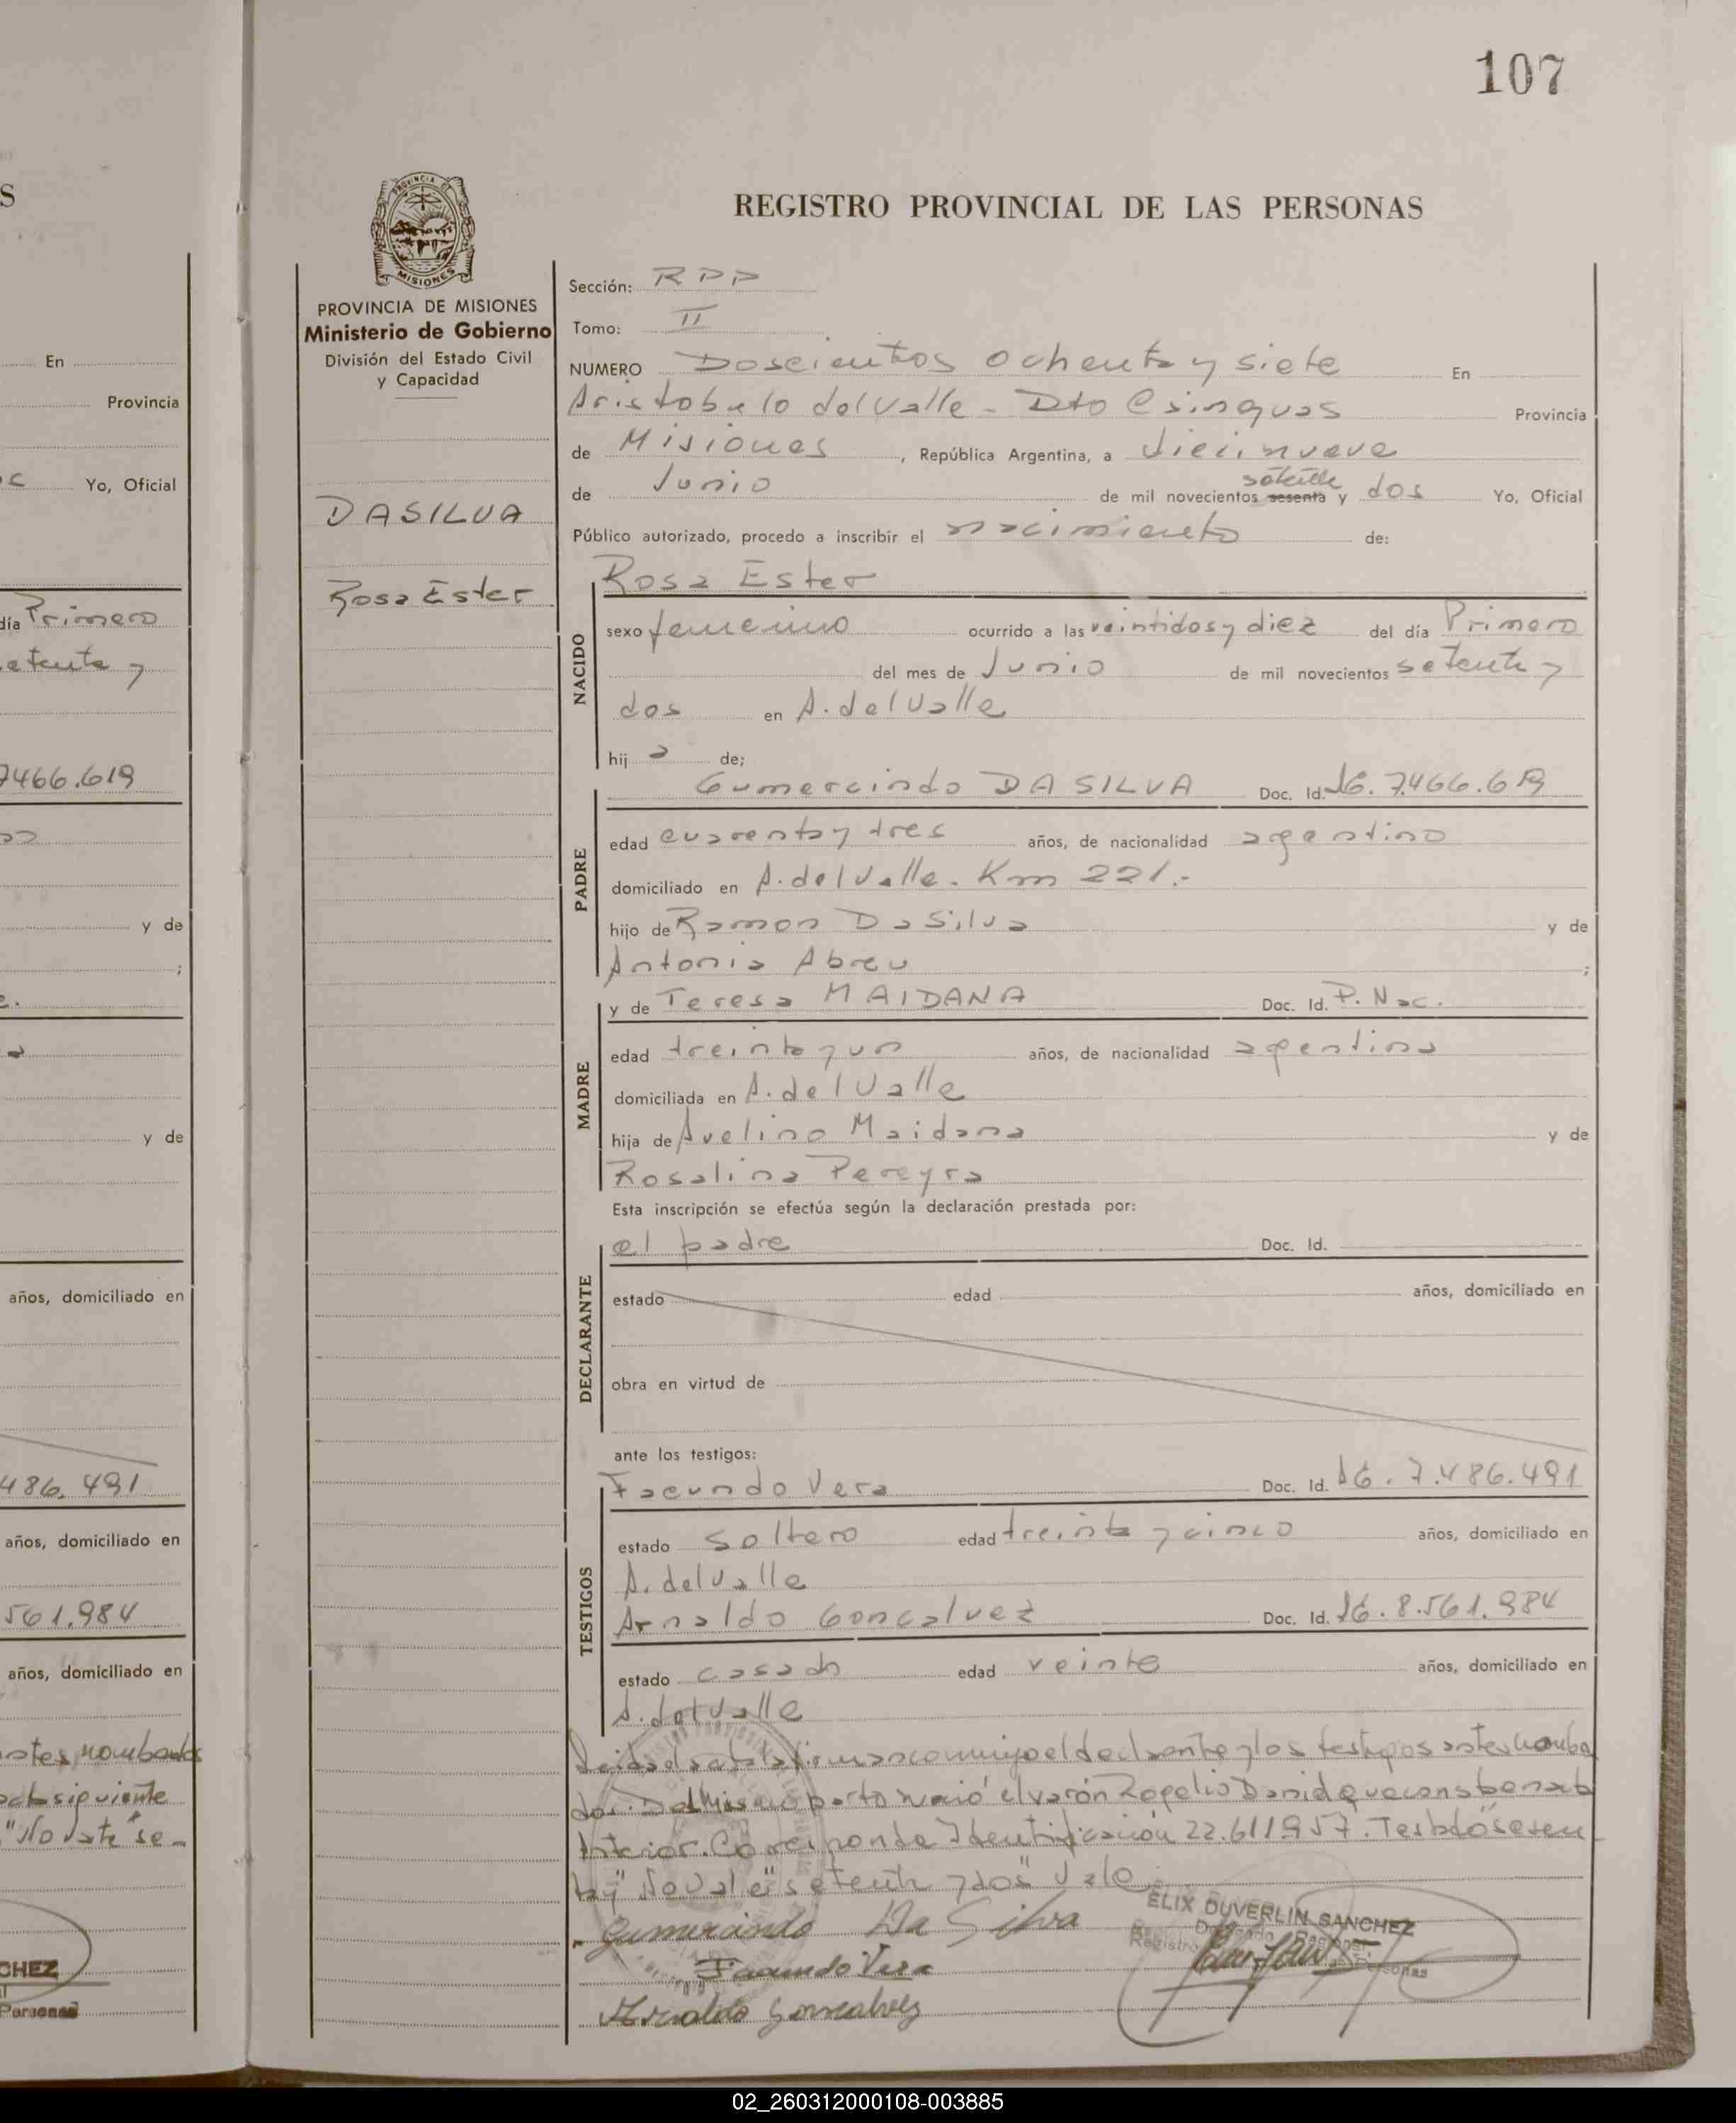 107
S
En
Provincia
Yo, Oficial
día Primero
etenta y
7466.619
y de
;
y de
años, domiciliado en
486.491
años, domiciliado en
561.984
años, domiciliado en
antes nombrados
siguiente
"No vale" se
CHEZ
Personas
PROVINCIA DE
MISIONES
PROVINCIA DE MISIONES
Ministerio de Gobierno
División del Estado Civil
y Capacidad
DASILVA
Rosa Ester
REGISTRO PROVINCIAL DE LAS PERSONAS
Sección: RPP
Tomo: II
NUMERO Doscientos ochenta y siete En
Aristobulo del Valle - Dto Csinguas Provincia
de Misiones, República Argentina, a diecinueve
setenta
de Junio de mil novecientos sesenta y dos Yo, Oficial
Público autorizado, procedo a inscribir el nacimiento de:
Rosa Ester
NACIDO
sexo femenino ocurrido a las veintidos y diez del día Primero
del mes de Junio de mil novecientos setenta y
dos en A. del Valle
hij a de;
Gumercindo DA SILVA Doc. Id. 7466.619
PADRE
edad cuarenta y tres años, de nacionalidad argentino
domiciliado en A. del Valle. Km 221.-
hijo de Ramon Da Silva y de
Antonia Abreu ;
y de Teresa MAIDANA Doc. Id. P. Nac.
MADRE
edad treinta y un años, de nacionalidad argentina
domiciliada en A. del Valle
hija de Avelino Maidana y de
Rosalina Pereyra
Esta inscripción se efectúa según la declaración prestada por:
el padre Doc. Id.
DECLARANTE
estado edad años, domiciliado en
obra en virtud de
ante los testigos:
Facundo Vera Doc. Id. 7.486.491
TESTIGOS
estado soltero edad treinta y cinco años, domiciliado en
A. del Valle
Arnaldo Goncalvez Doc. Id. 8.561.984
estado casado edad veinte años, domiciliado en
A. del Valle
Leida el acta la firman conmigo el declarante y los testigos antes nomba
dos. Del mismo parto nació el varón Rogelio Daniel que consta en acta
Anterior. Corresponde Identificación 22.611.957. Testado "sesen
ta" No vale "setenta y dos" Vale
Gumercindo Da Silva
Facundo Vera
Arnaldo Gonsalvez
ELIX DUVERLIN SANCHEZ
Registro Personas
02_260312000108-003885